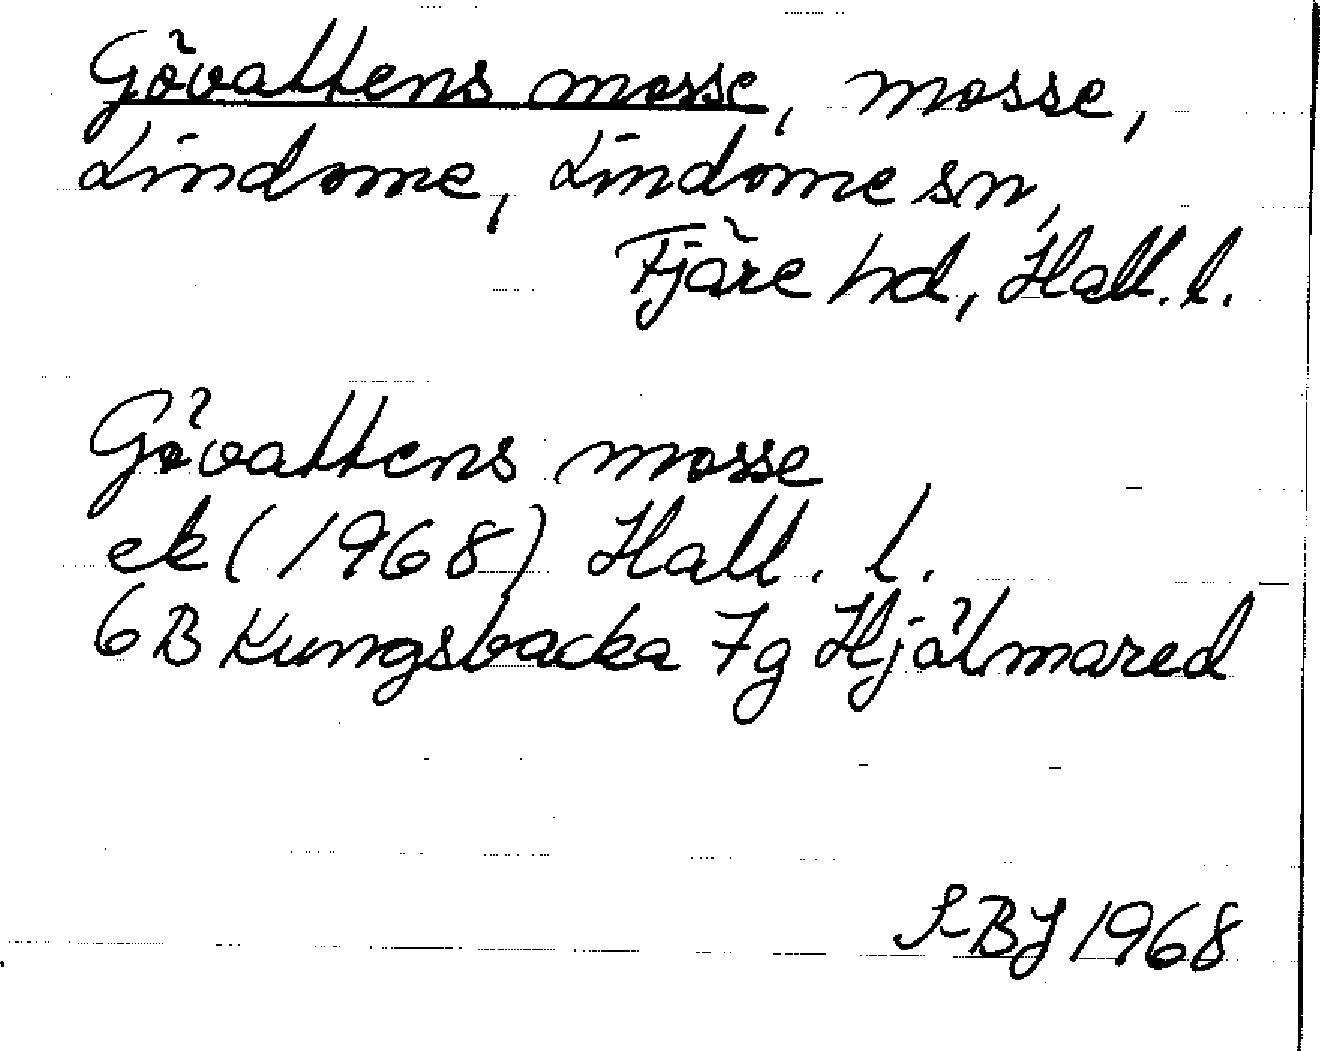 Gövattens mosse, mosse,
Lindome, Lindome sn,
Fjäre hd, Hall. l.
Gövattens mosse
ek (1968) Hall. l.
6B Kungsbacka 7g Hjälmared
SBJ 1968